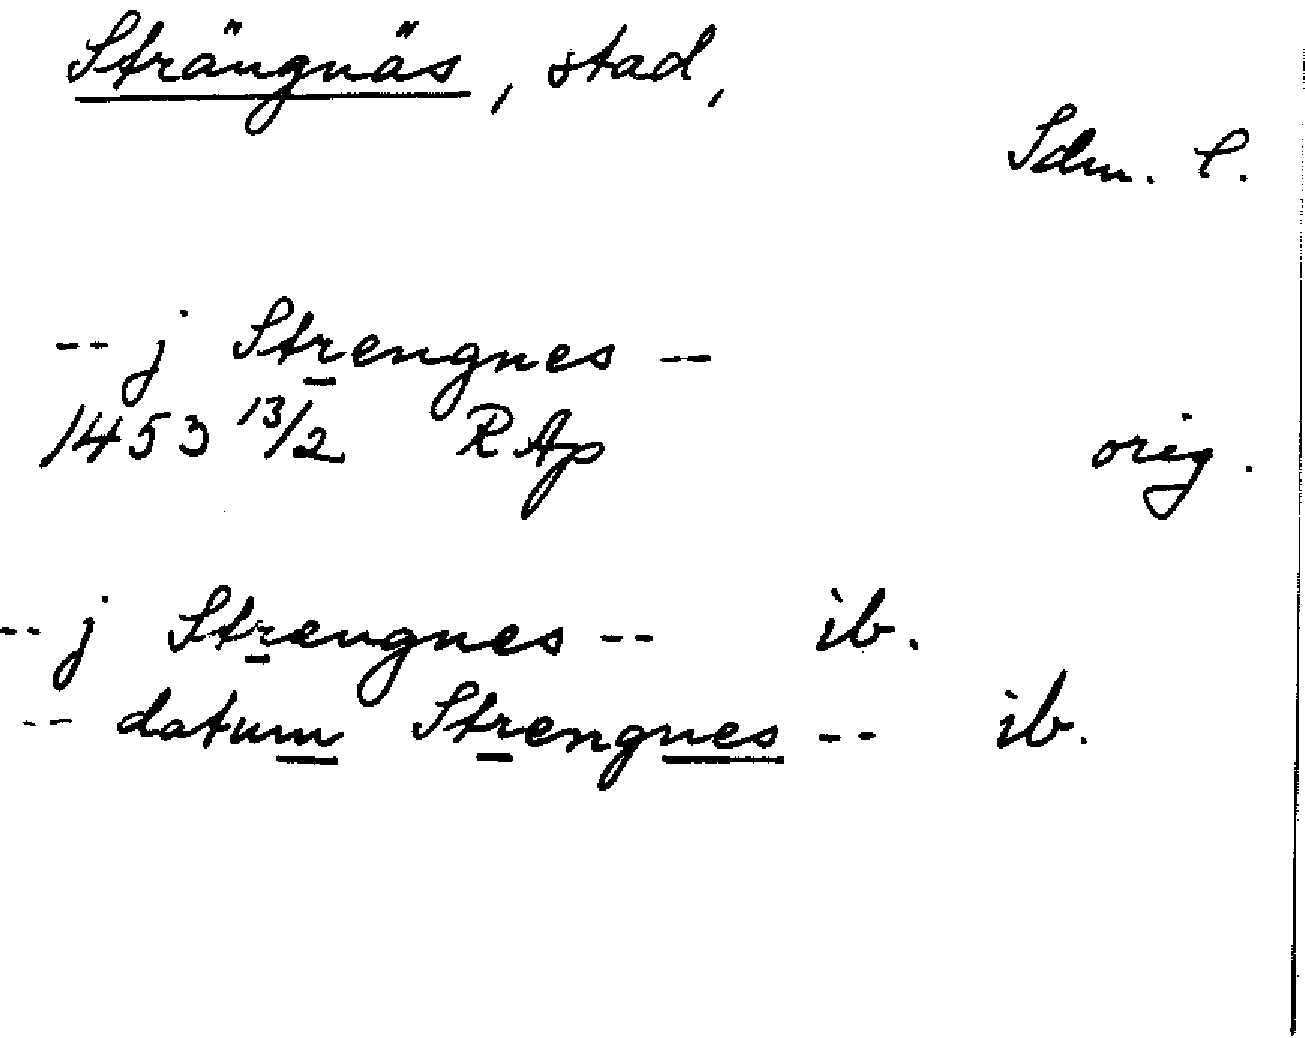 Strängnäs, stad,
Sdm. l.
-- j Strengnes --
1453 13/2 RAp orig.
-- j Strengnes -- ib.
-- datum Strengnes -- ib.